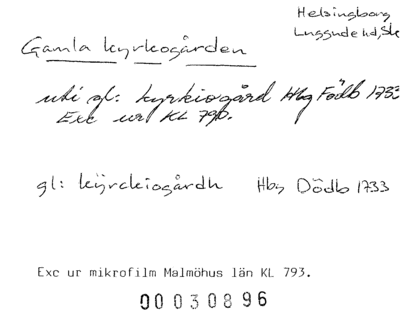 Helsingborg
Luggude hd, Sk
Gamla kyrkogården
uti gl: kyrkiogård Hbg Födb 1733
Exc ur KL 790.
gl: kÿrckiogårdh Hbg Dödb 1733
Exc ur mikrofilm Malmöhus län KL 793.
00030896